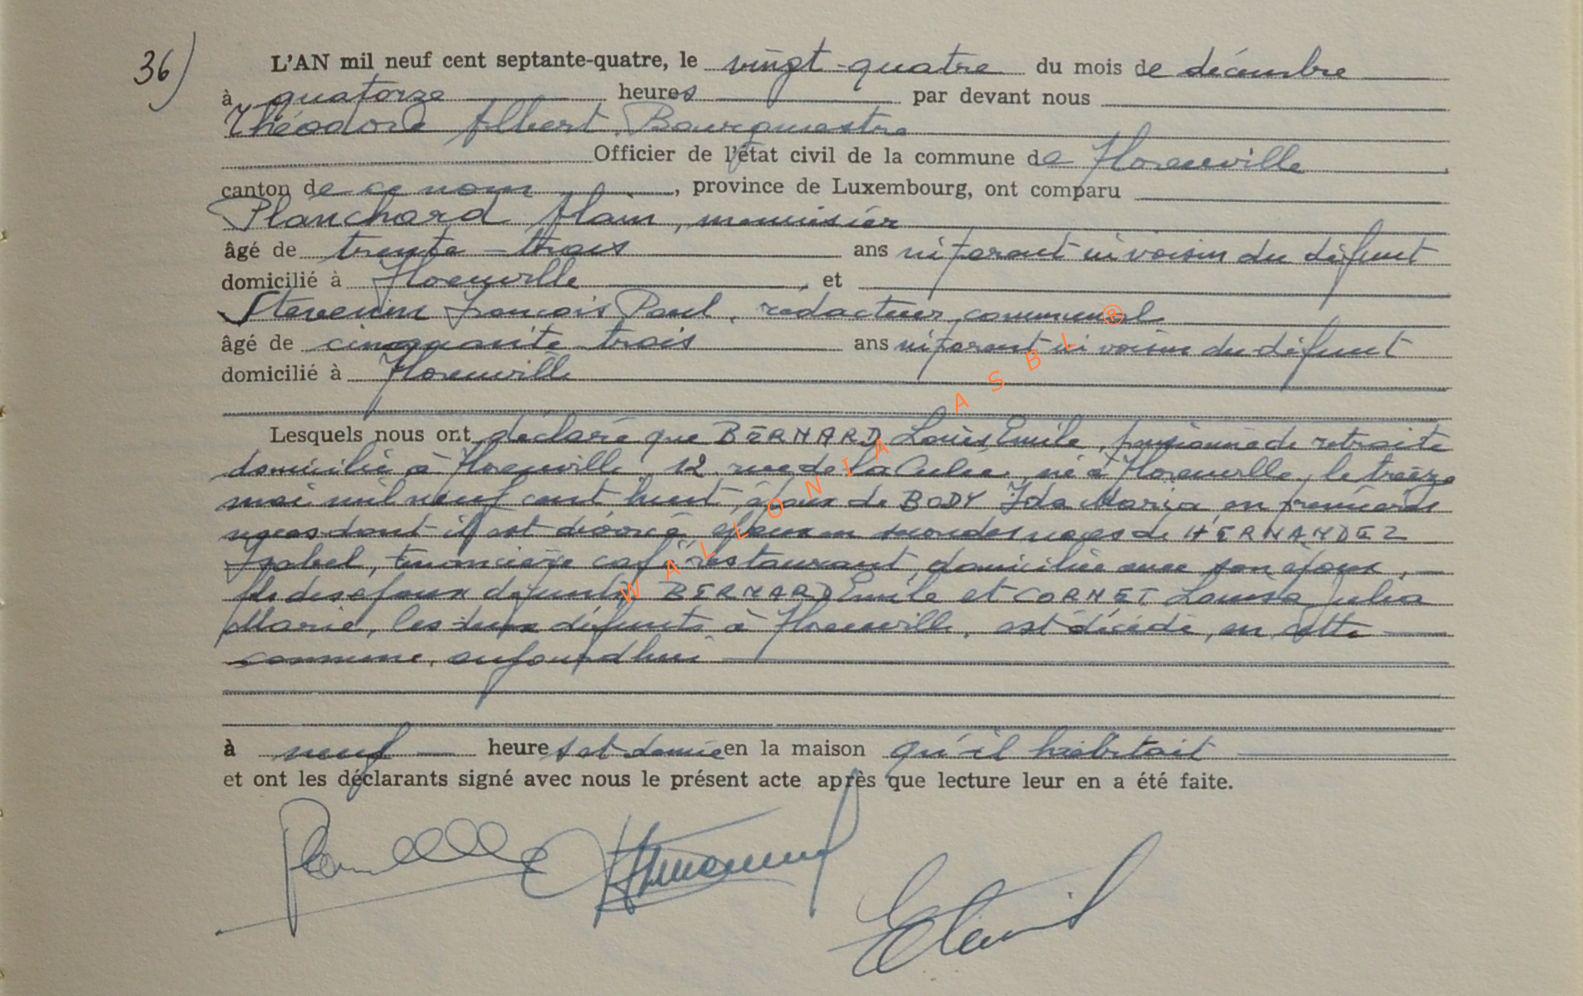 36)
L'AN mil neuf cent septante-quatre, le vingt-quatre du mois de décembre
à quatorze heures par devant nous
Théodore Albert, Bourgmestre
Officier de l'état civil de la commune de Florenville
canton de ce nom, province de Luxembourg, ont comparu
Planchard Alain, menuisier
âgé de trente-trois ans ni parent ni voisin du défunt
domicilié à Florenville, et
Stevenin François Paul, rédacteur communal
âgé de cinquante trois ans ni parent ni voisin du défunt
domicilié à Florenville
Lesquels nous ont déclaré que BERNARD Louis Emile, pensionné de retraite
domicilié à Florenville, 12, rue de la Culée, né à Florenville, le treize
mai mil neuf cent huit, époux de BODY Ida Maria, en premières
noces dont il est divorcé, époux en secondes noces de HERNANDEZ
Isabel, tenancière café restaurant, domiciliée avec son époux,
fils des époux défunts BERNARD Emile et CORNET Louisa Julia
Marie, les deux défunts à Florenville, est décédé, en cette
commune, aujourd'hui
à neuf heures et demie en la maison qu'il habitait
et ont les déclarants signé avec nous le présent acte après que lecture leur en a été faite.
WALLONIA ASBL ®